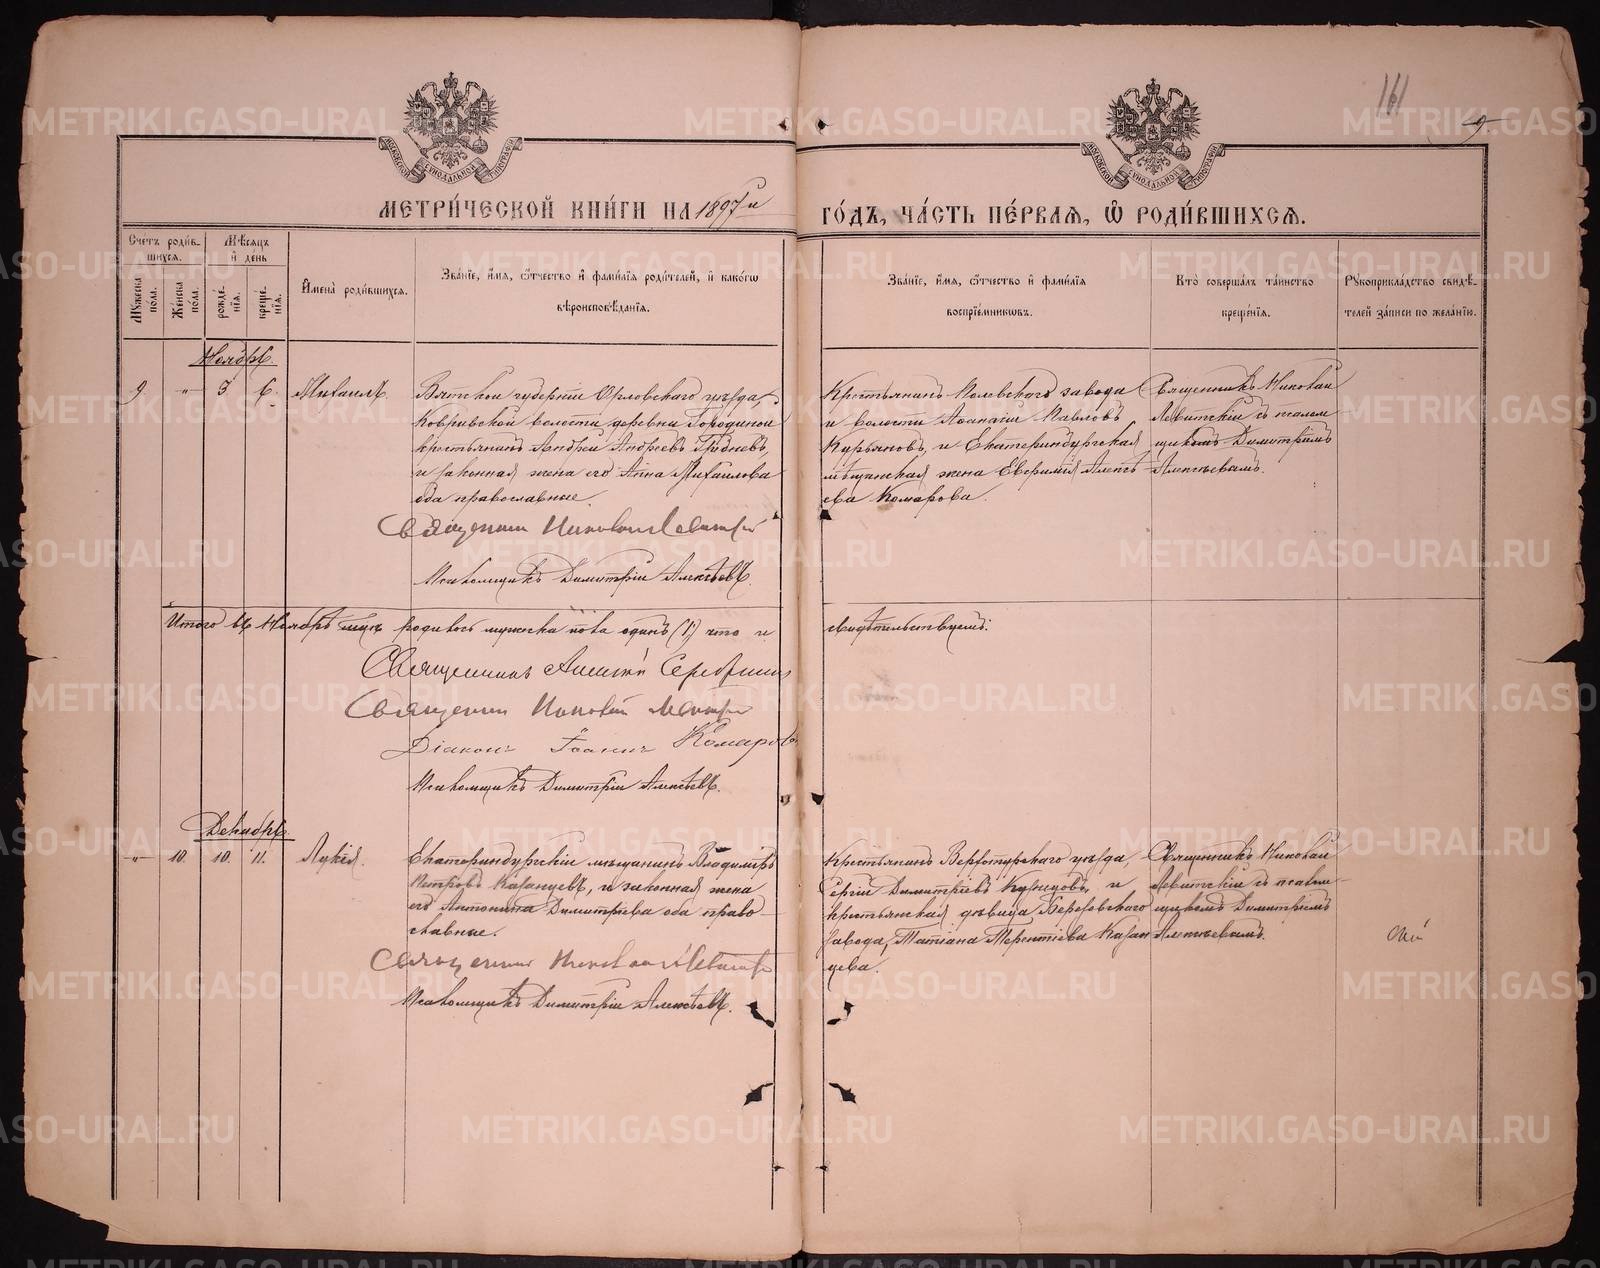 161
9
МЕТРИЧЕСКОЙ КНИГИ НА 1897й
ГОДЪ, ЧАСТЬ ПЕРВАЯ, Ѡ РОДИВШИХСЯ.
Счетъ родившихся.
Мужеска пола.
Женска пола.
Мѣсяцъ и день
рождения.
крещенія.
Имена родившихся.
Званіе, имя, отчество и фамилія родителей, и какого
вѣроисповѣданія.
Званіе, имя, отчество и фамилія
воспріемниковъ.
Кто совершалъ таинство
крещенія.
Рукоприкладство свидѣ-
телей записи по желанію.
Ноябрь.
9. " 5 6. Михаилъ.
Вятской губерніи Орловскаго уѣзда,
волости деревни
крестьянинъ Андрей Андреевъ
и законная жена его Анна Михаилова
оба православные.
Священникъ Николай Левитскій
Псаломщикъ Димитрій Алексѣевъ.
Крестьянинъ Полевскаго завода
и волости Аѳанасій Павловъ
и Екатеринбургская
мѣщанская жена Евфимія Алексѣ-
ева Комарова.
Священникъ Николай
Левитскій съ псалом
щикомъ Димитріемъ
Алексѣевымъ.
Итого въ Ноябрѣ родилось мужеска пола одинъ (1) что и
свидѣтельствуемъ:
Священникъ Алексій
Священникъ Николай Левитскій
Діаконъ Іоаннъ Комаровъ
Псаломщикъ Димитрій Алексѣевъ.
Декабрь.
" 10. 10. 11. Лукія.
Екатеринбургскій мѣщанинъ Владиміръ
Петровъ Казанцевъ, и законная жена
его Антонина Димитріева оба право-
славные.
Священникъ Николай Левитскій
Псаломщикъ Димитрій Алексѣевъ.
Крестьянинъ Верхотурскаго уѣзда,
Сергій Димитріевъ и
крестьянская дѣвица Березовскаго
завода, Татіана Терентіева Казан
цева.
Священникъ Николай
Левитскій съ псалом-
щикомъ Димитріемъ
Алексѣевымъ.
METRIKI.GASO-URAL.RU